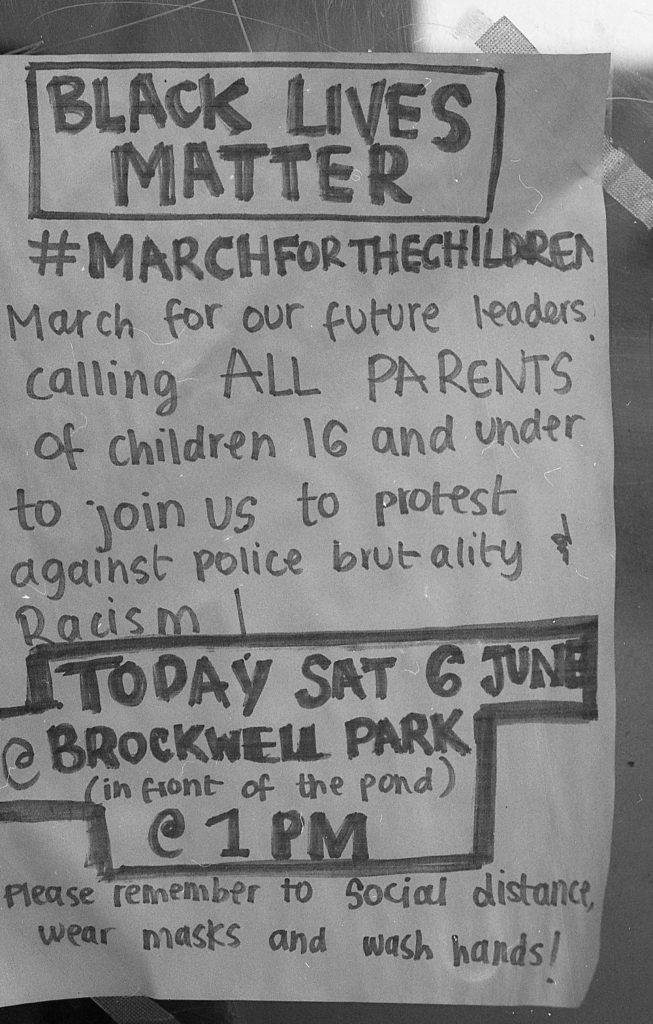 BLACK LIVES
MATTER
#MARCHFORTHECHILDREN
March for our future leaders.
calling ALL PARENTS
of children 16 and under
to join us to protest
against police brutality &
Racism !
TODAY SAT 6 JUNE
@ BROCKWELL PARK
(in front of the pond)
@ 1 PM
Please remember to social distance,
wear masks and wash hands!